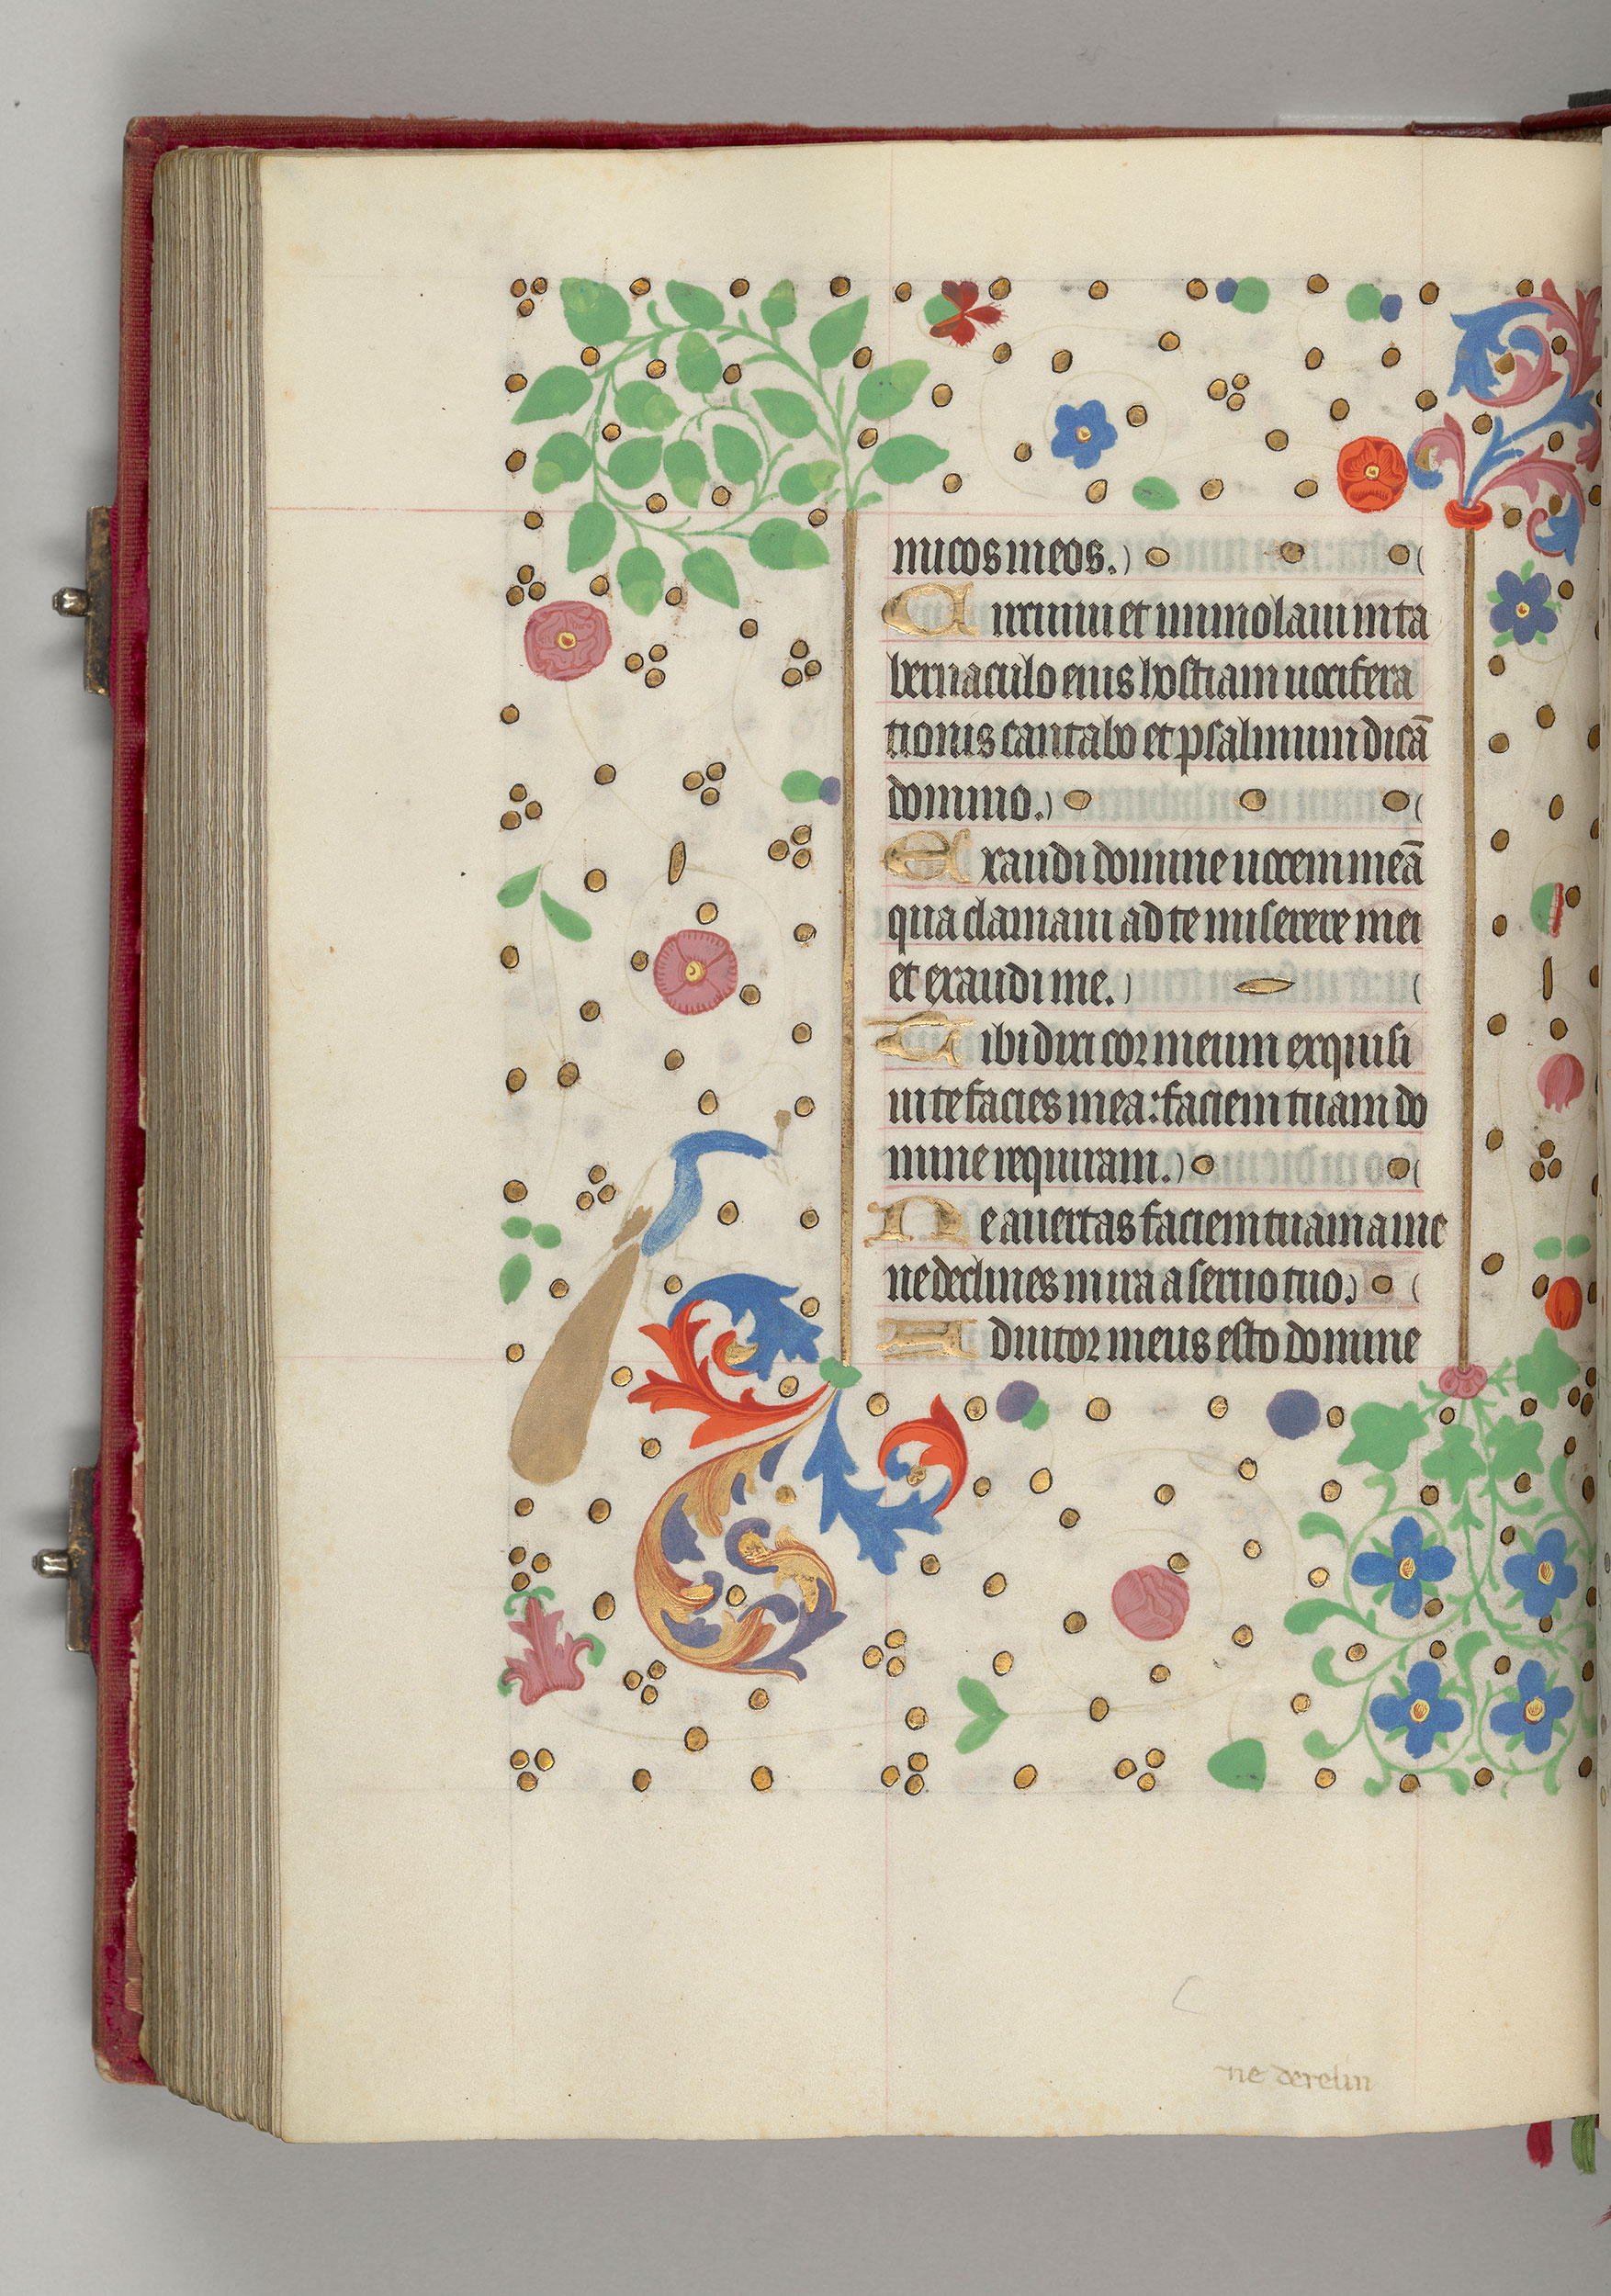 micos meos.
Circuiui et immolaui in ta
bernaculo eius hostiam uocifera
tionis cantabo et psalmum dicā
domino.
Exaudi domine uocem meā
qua clamaui ad te miserere mei
et exaudi me.
Tibi dixi cor meum exquisi
uit te facies mea: faciem tuam do
mine requiram.
Ne auertas faciem tuam a me
ne declines in ira a seruo tuo.
Adiutor meus esto domine
ne derelin